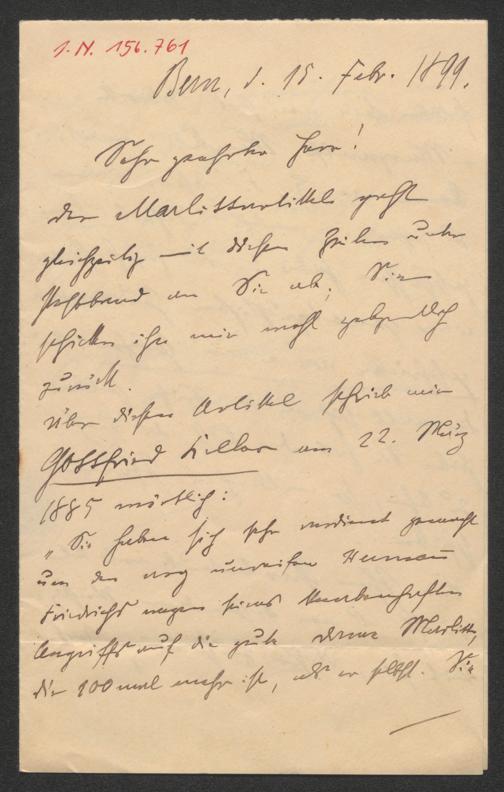 I. N. 156.761
Bern, d. 15. Febr. 1899.
Sehr geehrter Herr!
Der Marlittartikel geht
gleichzeitig mit diesen Zeilen unter
an Sie ab; Sie
schicken ihn mir wohl gelegentlich
zurück.
Über diesen Artikel schrieb mir
Gottfried Keller am 22. März
1885 wörtlich:
„Sie haben sich sehr verdient gemacht
um den arg unreifen Herman
Friedrichs wegen seines knabenhaften
Angriffs auf die gute Marlitt,
die 100 mal mehr ist, als er selbst. Sie